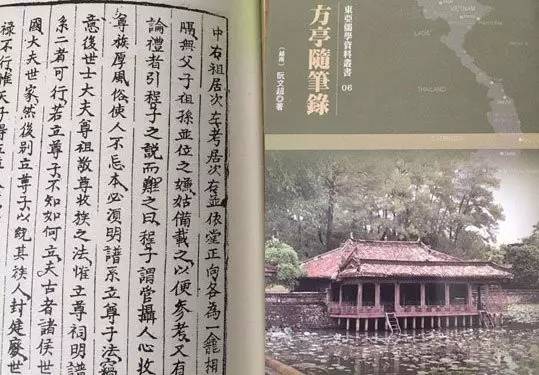 中右祖居次左考居次右並依堂正向各為一龕相
隔無父子祖孫並位之嫌姑備載之以便參考又有
論禮者引程子之說而難之曰程子謂管攝人心收
尊族厚風俗使人不忘本必須明譜系立尊子法竊
意後世士大夫尊祖敬尊收族之法惟立尊祠明譜
系二者可行若立尊子不知如何立夫古者諸侯世
國大夫世家然後別立尊子以統其族人封建廢世
祿不行惟天子得立
東亞儒學資料叢書 06
方亭隨筆錄
〔越南〕阮文超 著
VIETNAM
LAOS
THAILAND